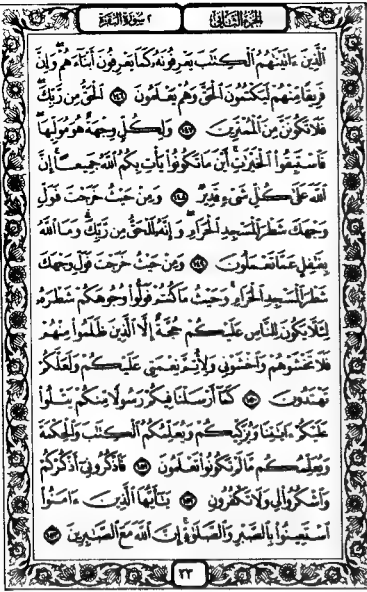 الجزء الثاني
٢ سورة البقرة
الَّذِينَ ءَاتَيْنَٰهُمُ الْكِتَٰبَ يَعْرِفُونَهُۥ كَمَا يَعْرِفُونَ أَبْنَآءَهُمْ وَإِنَّ
فَرِيقًا مِّنْهُمْ لَيَكْتُمُونَ الْحَقَّ وَهُمْ يَعْلَمُونَ ۝١٤٦ الْحَقُّ مِن رَّبِّكَ
فَلَا تَكُونَنَّ مِنَ الْمُمْتَرِينَ ۝١٤٧ وَلِكُلٍّ وِجْهَةٌ هُوَ مُوَلِّيهَا
فَاسْتَبِقُوا۟ الْخَيْرَٰتِ أَيْنَ مَا تَكُونُوا۟ يَأْتِ بِكُمُ اللَّهُ جَمِيعًا إِنَّ
اللَّهَ عَلَىٰ كُلِّ شَىْءٍ قَدِيرٌ ۝١٤٨ وَمِنْ حَيْثُ خَرَجْتَ فَوَلِّ
وَجْهَكَ شَطْرَ الْمَسْجِدِ الْحَرَامِ وَإِنَّهُۥ لَلْحَقُّ مِن رَّبِّكَ وَمَا اللَّهُ
بِغَٰفِلٍ عَمَّا تَعْمَلُونَ ۝١٤٩ وَمِنْ حَيْثُ خَرَجْتَ فَوَلِّ وَجْهَكَ
شَطْرَ الْمَسْجِدِ الْحَرَامِ وَحَيْثُ مَا كُنتُمْ فَوَلُّوا۟ وُجُوهَكُمْ شَطْرَهُۥ
لِئَلَّا يَكُونَ لِلنَّاسِ عَلَيْكُمْ حُجَّةٌ إِلَّا الَّذِينَ ظَلَمُوا۟ مِنْهُمْ
فَلَا تَخْشَوْهُمْ وَاخْشَوْنِى وَلِأُتِمَّ نِعْمَتِى عَلَيْكُمْ وَلَعَلَّكُمْ
تَهْتَدُونَ ۝١٥٠ كَمَآ أَرْسَلْنَا فِيكُمْ رَسُولًا مِّنكُمْ يَتْلُوا۟
عَلَيْكُمْ ءَايَٰتِنَا وَيُزَكِّيكُمْ وَيُعَلِّمُكُمُ الْكِتَٰبَ وَالْحِكْمَةَ
وَيُعَلِّمُكُم مَّا لَمْ تَكُونُوا۟ تَعْلَمُونَ ۝١٥١ فَاذْكُرُونِىٓ أَذْكُرْكُمْ
وَاشْكُرُوا۟ لِى وَلَا تَكْفُرُونِ ۝١٥٢ يَٰٓأَيُّهَا الَّذِينَ ءَامَنُوا۟
اسْتَعِينُوا۟ بِالصَّبْرِ وَالصَّلَوٰةِ إِنَّ اللَّهَ مَعَ الصَّٰبِرِينَ ۝١٥٣
٢٣